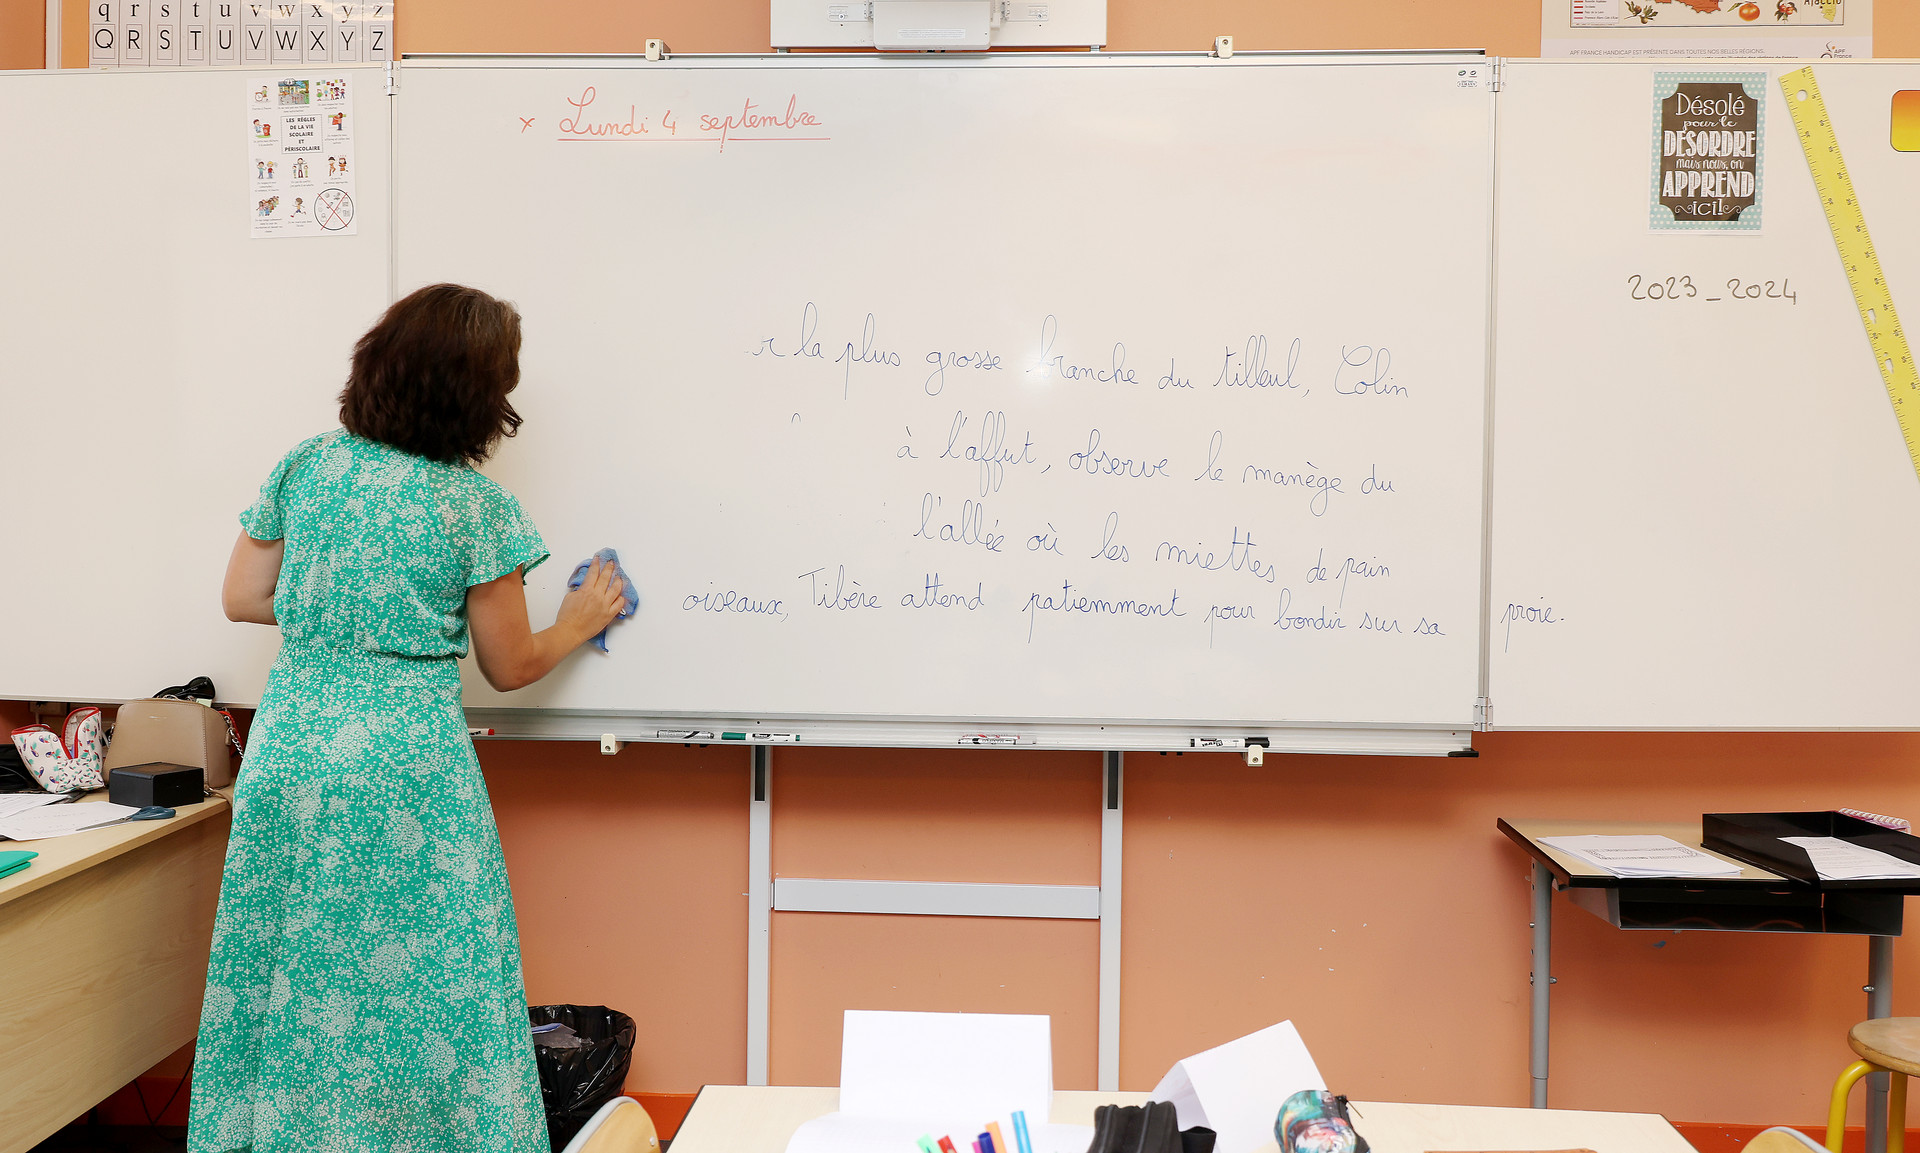 q r s t u v w x y z
Q R S T U V W X Y Z
LES RÈGLES
DE LA VIE
SCOLAIRE
ET
PÉRISCOLAIRE
x Lundi 4 septembre
r la plus grosse branche du tilleul, Colin
à l'affut, observe le manège du
l'allée où les miettes de pain
oiseaux, Tibère attend patiemment pour bondir sur sa proie.
Ajaccio
APF FRANCE HANDICAP EST PRÉSENTE DANS TOUTES NOS BELLES RÉGIONS.
APF
France
Désolé
pour le
DÉSORDRE
mais nous, on
APPREND
ici!
2023_2024